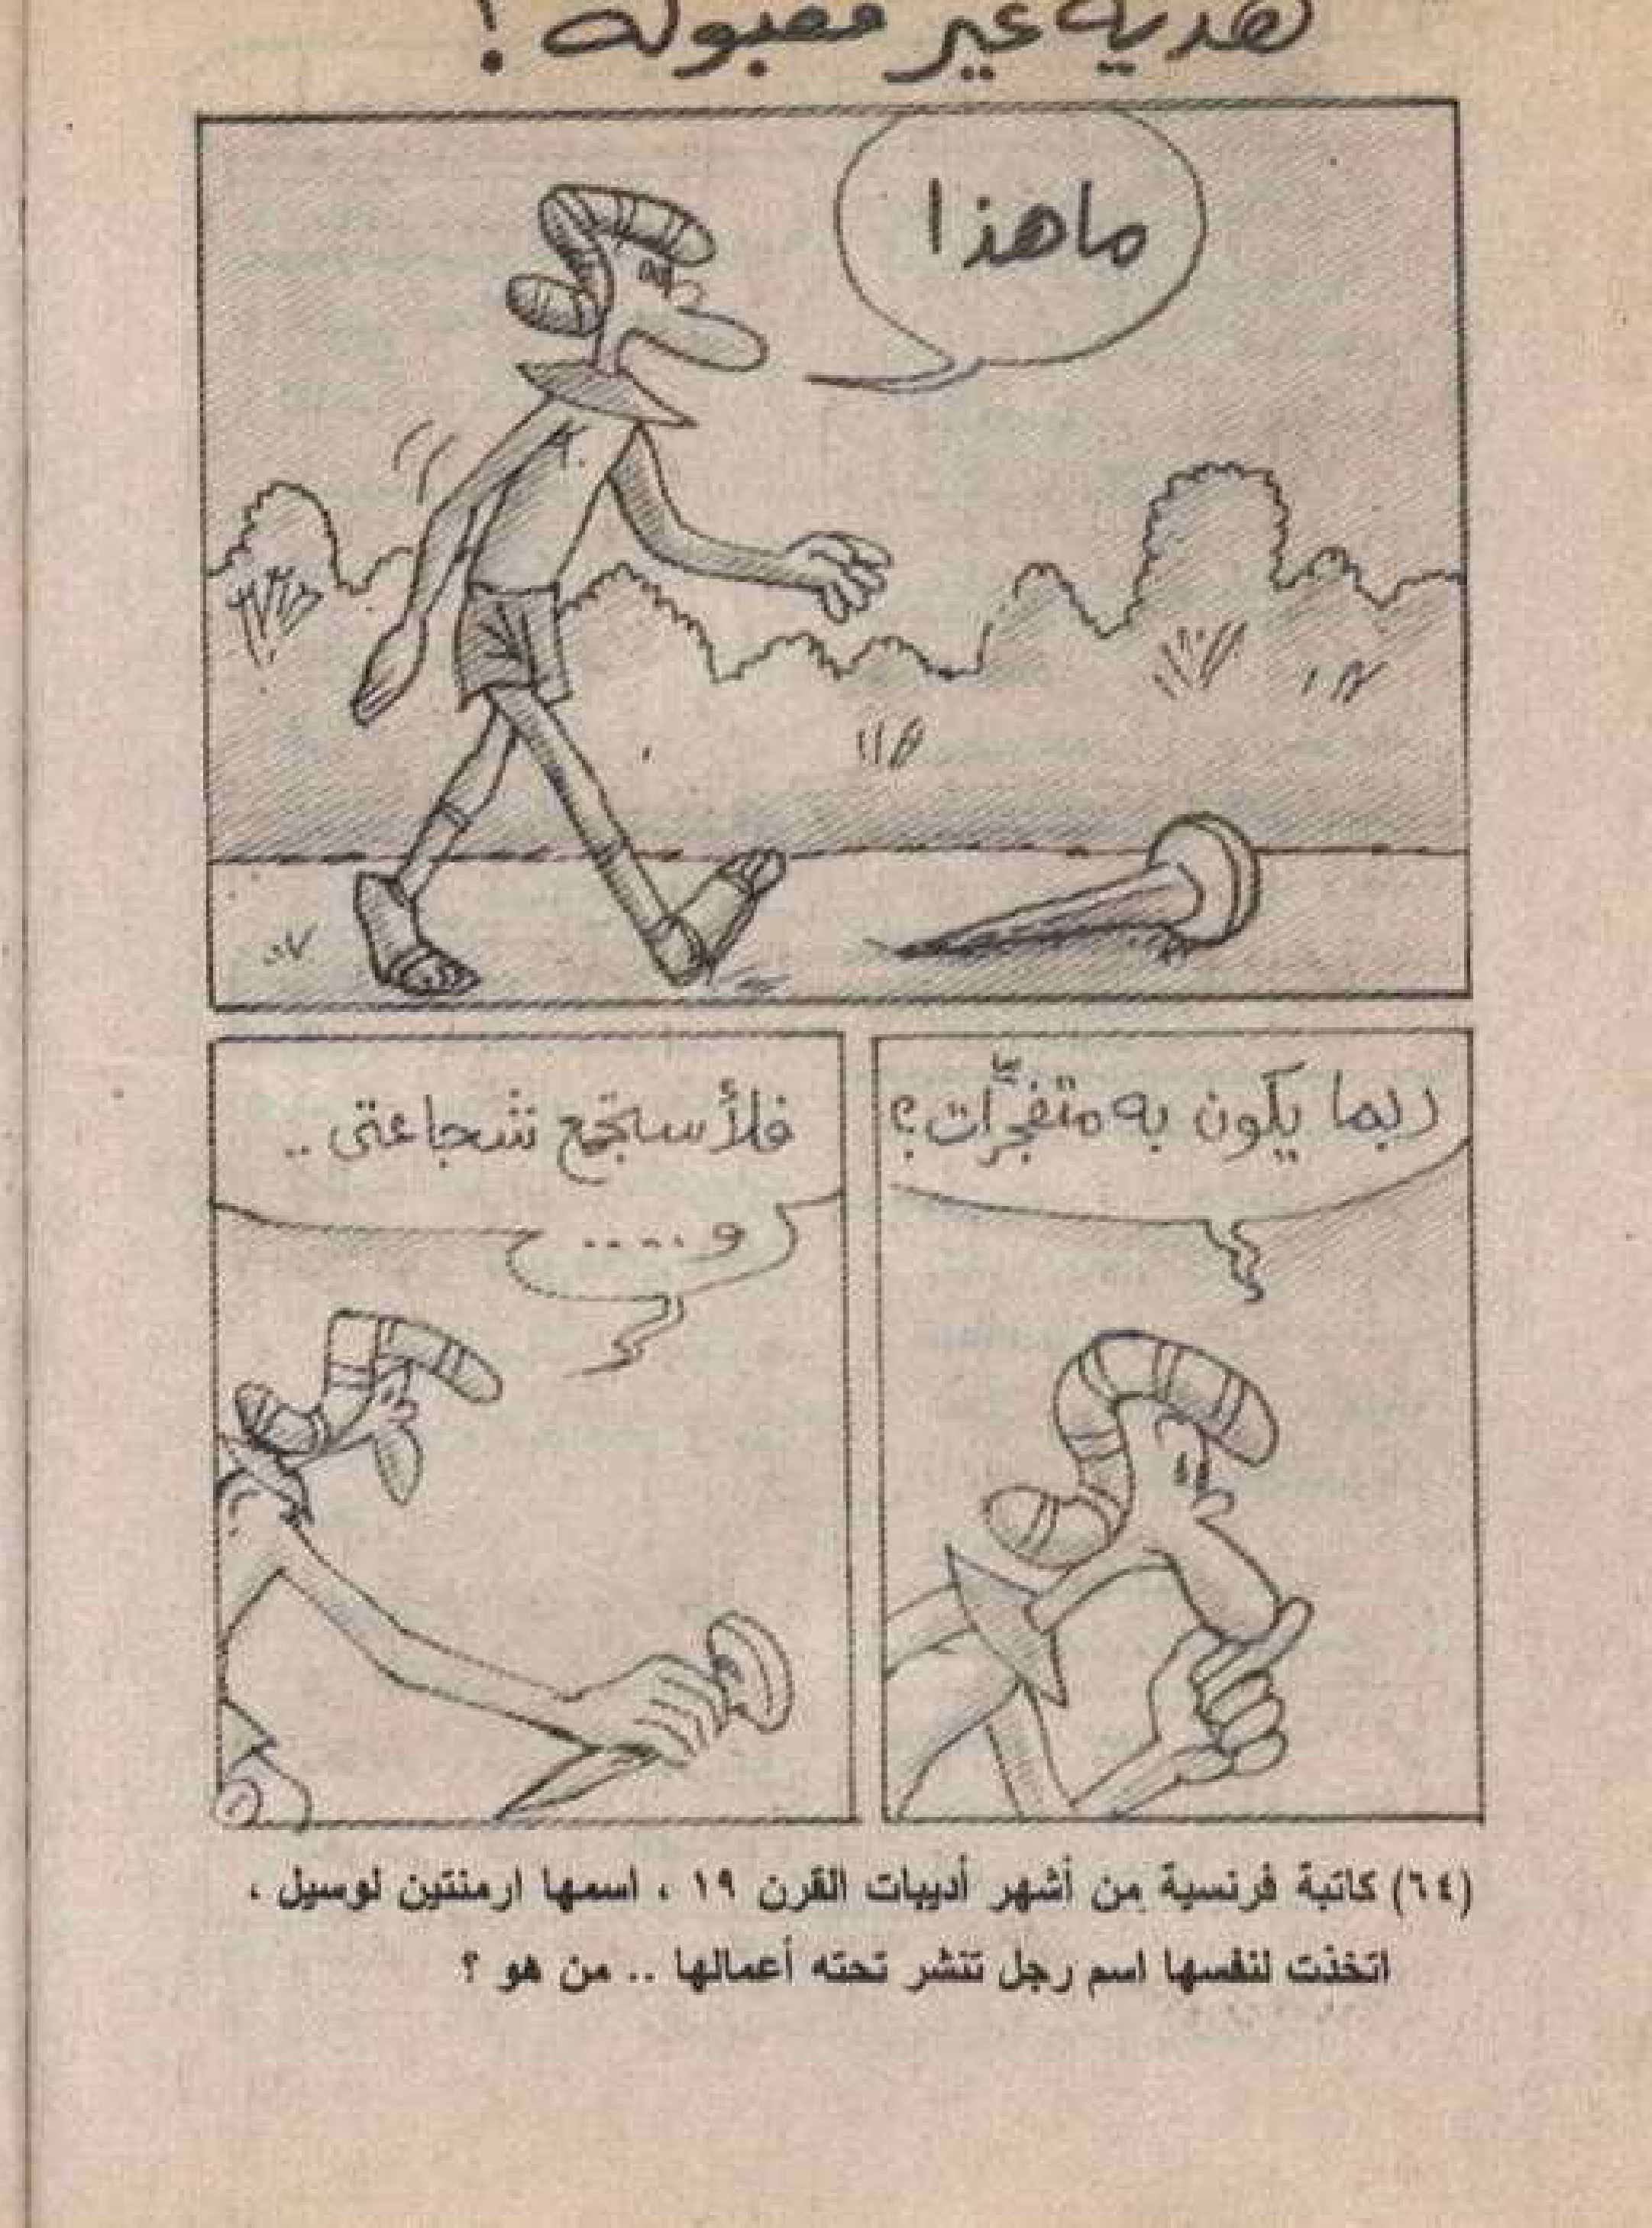 هدية غير مقبولة !
ماهذا
ربما يكون به متفجّرات؟
فلأستجمع شجاعتى ..
و.....
(٦٤) كاتبة فرنسية من أشهر أديبات القرن ١٩ ، اسمها ارمنتين لوسيل ،
اتخذت لنفسها اسم رجل تنشر تحته أعمالها .. من هو ؟